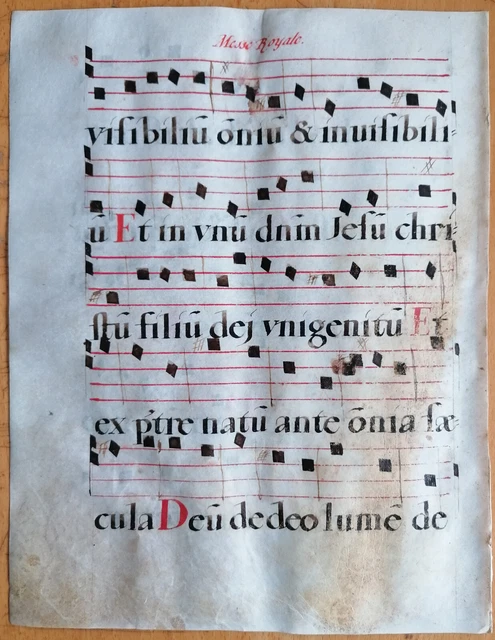 Messe Royale.
visibiliū ōniū & inuisibili-
ū Et in vnū dnm̄ Jesū chri-
stū filiū dej vnigenitū Et
ex p̄tre natū ante ōnia sæ-
cula Deū de deo lumē de